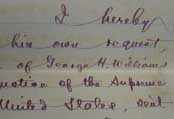 I hereby
his own request,
of George H. Williams
nation of the Supreme
United States, and